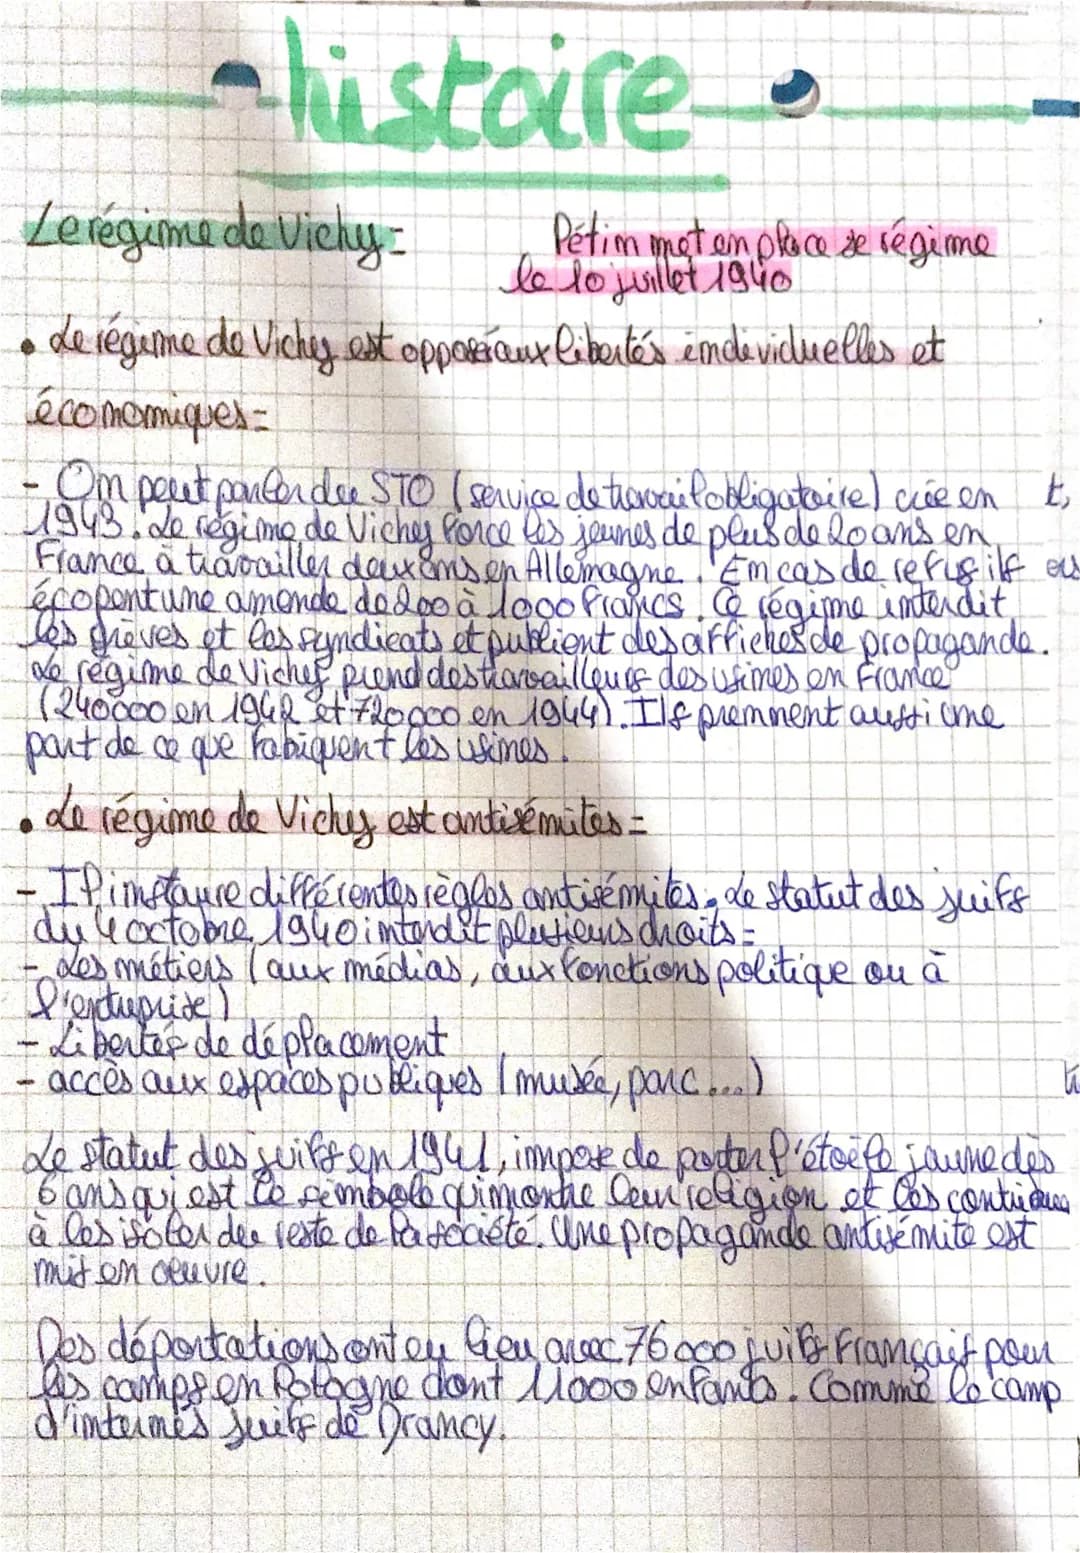 histoire
Le régime de Vichy = Pétin met en place se régime
le 10 juillet 1940
• Le régime de Vichy est opposé aux libertés individuelles et
économiques =
- On peut parler du STO (service de travail obligatoire) crée en
1943. Le régime de Vichy force les jeunes de plus de 20 ans en
France à travailler deux ans en Allemagne. En cas de refus ils
écopent une amende de 200 à 1000 francs. Ce régime interdit
les grèves et les syndicats et publient des affiches de propagande.
Le régime de Vichy prend des travailleurs des usines en France
(240000 en 1942 et 720000 en 1944). Ils prennent aussi une
part de ce que fabiquent les usines.
• Le régime de Vichy est antisémites =
- Il instaure différentes règles antisémites. Le statut des juifs
du 4 octobre 1940 interdit plusieurs droits =
- Les métiers (aux médias, aux fonctions politique ou à
l'entreprise)
- Libertés de déplacement
- accès aux espaces publiques (musée, parc...)
Le statut des juifs en 1941, impose de porter l'étoile jaune dès
6 ans qui est le simbole qui montre leur religion et les
à les isoler du reste de la société. Une propagande antisémite est
mis en oeuvre.
Des déportations ont eu lieu avec 76000 juifs français pour
les camps en Pologne dont 11000 enfants. Comme le camp
d'internés juifs de Drancy.